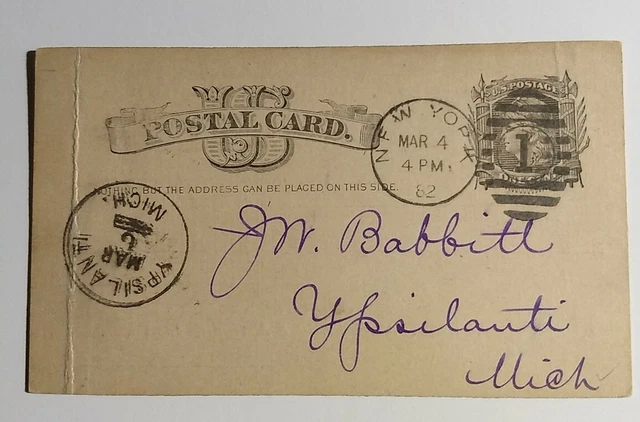 U.S. POSTAGE
US
POSTAL CARD.
NEW YORK
MAR 4
4 PM.
82
1
ONE CENT
NOTHING BUT THE ADDRESS CAN BE PLACED ON THIS SIDE.
YPSILANTI
MAR
MICH.
J.W. Babbitt
Ypsilanti
Mich